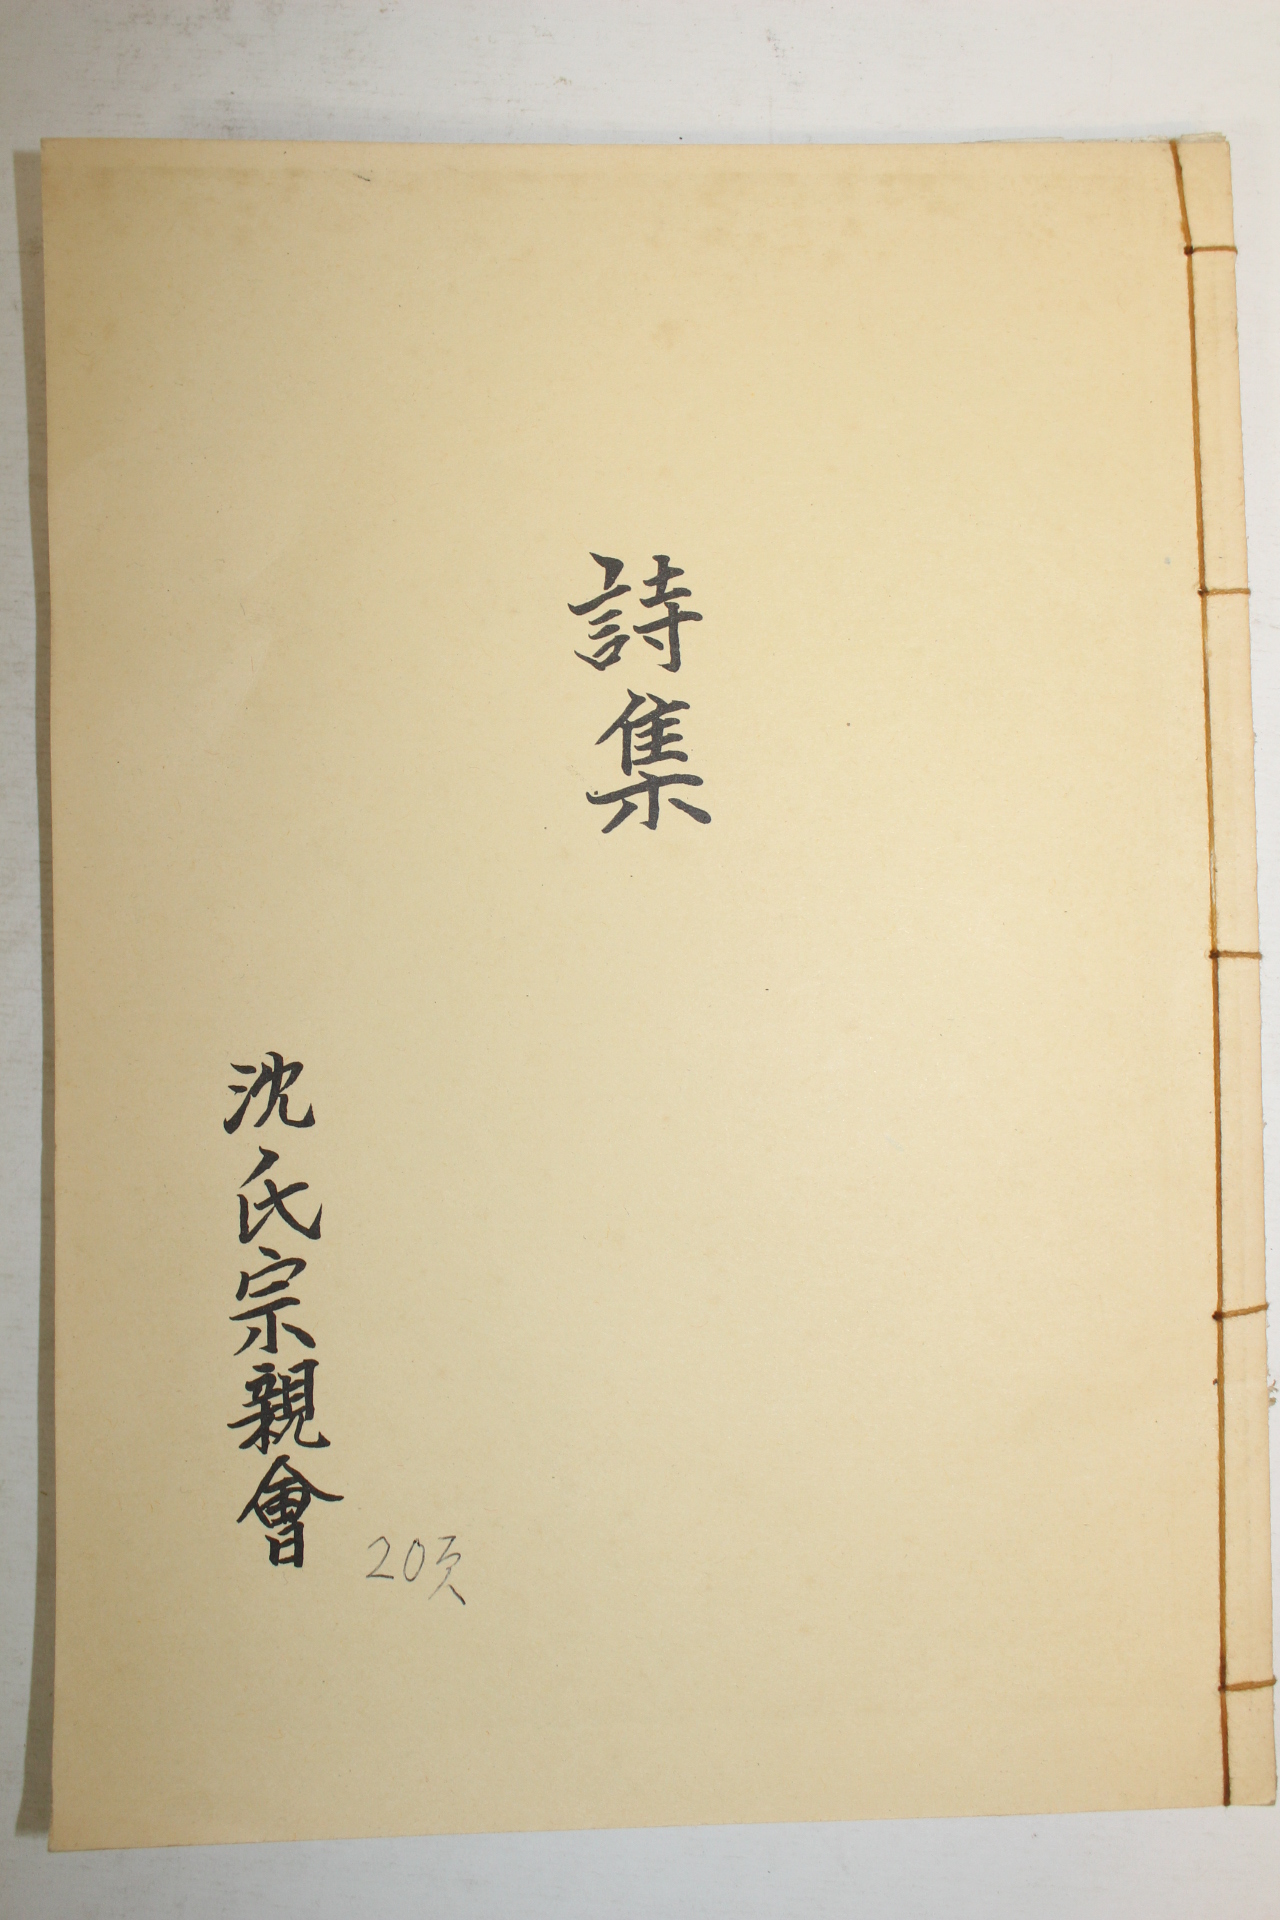 詩集
沈氏宗親會
20页